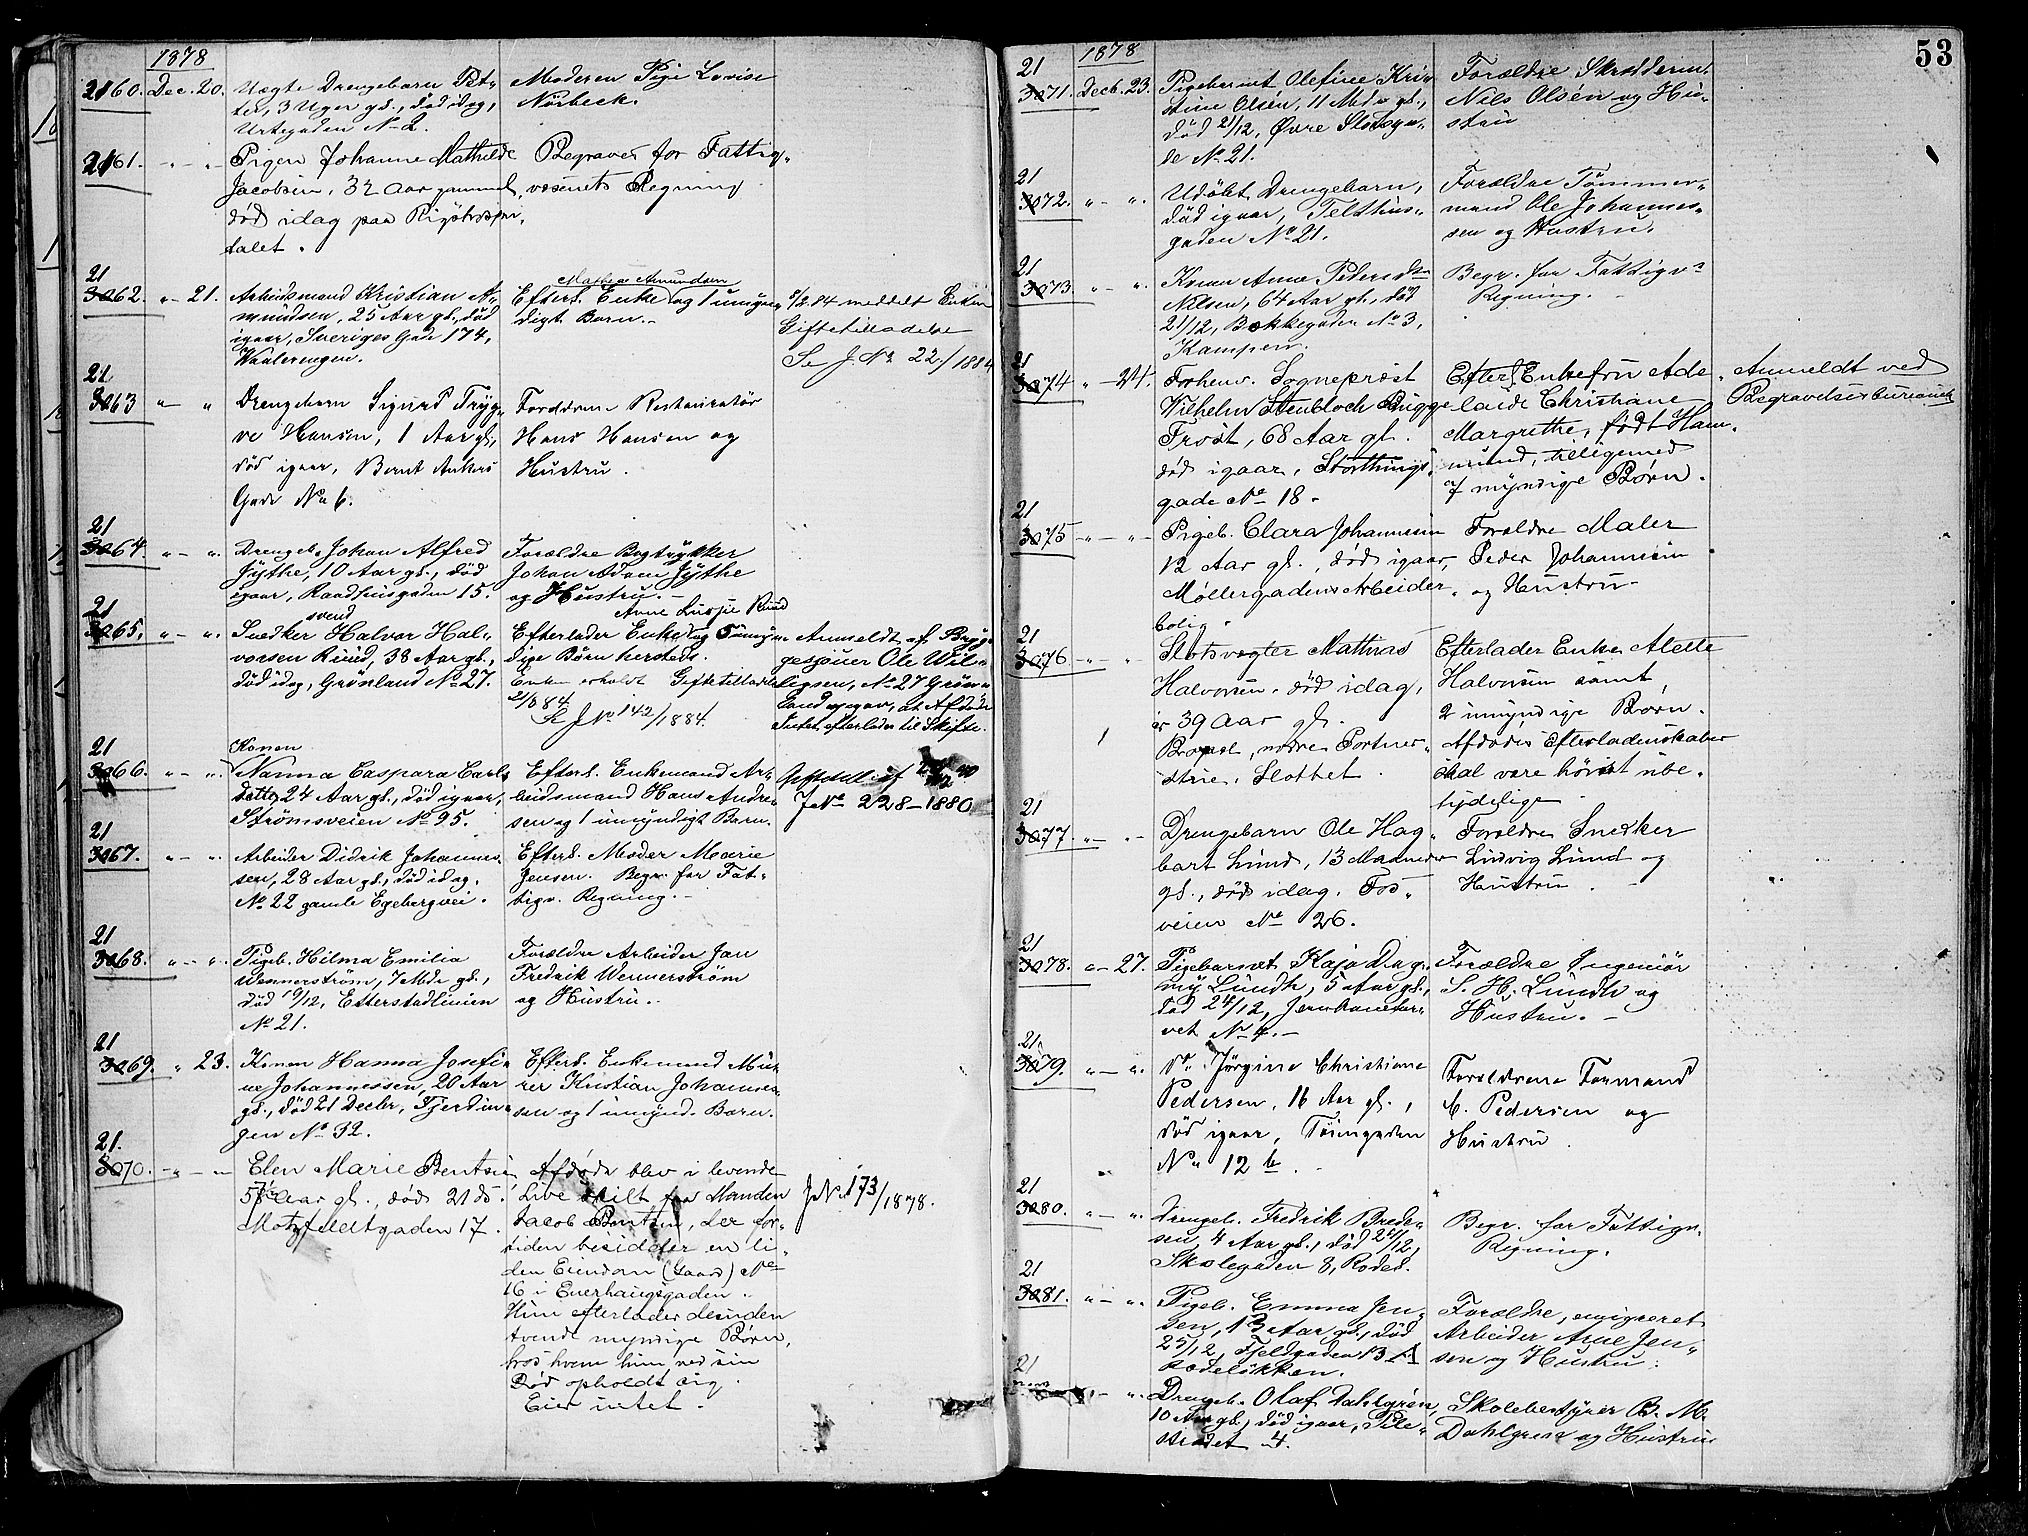 1878
2160. Dec. 20. Uægte Drengebarn Pet-
ter, 3 Uger gl., død idag,
Urtegaden No 2.
Moderen Pige Lovise
Norbeck.
2161. " - " Pigen Johanne Mathilde
Jacobsen, 32 Aar gammel,
død idag paa Rigshospi-
talet.
Begraves for Fattig-
væsenets Regning
21
3062. " - 21. Arbeidsmand Kristian A-
mundsen, 25 Aar gl., død
igaar, Sveriges Gade 174,
Vaalerengen.
Mathea Amundsen
Efterl. Enke og 1 umyn-
digt Barn.-
5/2.84 meddelt Enken
Giftetilladelse
Se J. No 22./1884
21
3063 " " Drengebarn Sigurd Tryg-
ve Hansen, 1 Aar gl.,
død igaar, Bernt Ankers
Gade No 6.
Forældrene Restauratør
Hans Hansen og
Hustru.
21
3064. " - " Drengeb. Johan Alfred
Jythe, 10 Aar gl., død
igaar, Raadhusgaden 15.
Forældre Bogtrykker
Johan Adam Jythe
og Hustru.-
21
3065. " - " svend
Snedker Halvor Hal-
vorsen Ruud, 38 Aar gl.,
død idag, Grønland No 27.
Anne Lussie Ruud
Efterlader Enke og 5 umyn-
dige Børn hersteds.
Enken erholdt Giftetilladelse
21/8 84.
Se J No 142/1884.
Anmeldt af Bryg-
gesjouer Ole Wil-
legsen, No 27 Grøn-
land opgav, at Afdøde
Intet efterlader til Skifte.
21
3066. " - " Konen
Nanna Caspara Carls-
datter 24 Aar gl., død igaar,
Strømsveien No 95.
Efterl. Enkemand Ar-
beidsmand Hans Andre-
sen og 1 umyndigt Barn.
J No 228-1880
21
3067. " - " Arbeider Didrik Johannes-
sen, 28 Aar gl., død idag.
No 22 gamle Egebergvei.
Efterl. Moder Marie
Jensen. Begr. for Fat-
tigv. Regning.-
21
3068. " - " Pigeb. Hilma Emilia
Wennerstrøm, 7 Mdr gl.,
død 19/12, Etterstadlinien
No 21.
Forældre Arbeider Jan
Fredrik Wennerstrøm
og Hustru.-
21
3069. " 23. Konen Hanna Josefi-
ne Johannessen, 20 Aar
gl., død 21 Decbr, Fjerdin-
gen No 32.
Efterl. Enkemand Mu-
rer Kristian Johannes-
sen og 1 umynd. Barn.
21.
3070. - " - " Elen Marie Bentsen
58 Aar gl., død 21 ds.
Motzfeldtgaden 17.
Afdøde blev i levende
Live skilt fra Manden
Jacob Bentsen, der for-
tiden besidder en li-
den Eiendom (Gaard) No
16 i Enerhaugsgaden.
Hun efterlader desuden
tvende myndige Børn,
hos hvem hun ved sin
Død opholdt sig.
Eier intet.
J No 173/1878.
53
1878
21
3071. Decb. 23. Pigebarnet Olefine Kri-
stine Olsén, 11 Mdr gl.,
død 21/12, Øvre Slotsga-
de No 21.
Forældre Skræddersv.
Nils Olsén og Hu-
stru
21
3072. " - " Udøbt Drengebarn,
død igaar, Telthus-
gaden No 21.
Forældre Tømmer-
mand Ole Johannes-
sen og Hustru.
21
3073. " - " Konen Anne Pedersdtr
Nilsen, 64 Aar gl., død
21/12, Bækkegaden No 3,
Kampen.
Begr. for Fattigvs
Regning.-
21
3074 " - 24. Forhenv. Sogneprest
Vilhelm Stenbloch Bugge
Frost, 68 Aar gl.
død igaar, Storthings-
gade No 18.
Efterl. Enkefru Ade-
laide Christiane
Margrethe, født Ham-
mund, tilligemed
7 myndige Børn.
Anmeldt ved
Begravelsesbureauet
21
3075 - " - " - Pigeb. Clara Johannesen
12 Aar gl., død igaar,
Møllergadens Arbeider-
bolig.
Forældre Maler
Peder Johannesen
og Hustru.
21
3076 " - " Slotsvægter Mathias
Halvorsen, død idag,
er 39 Aar gl.
Bopæl, nedre Portner-
stue, Slottet.
Efterlader Enke Alette
Halvorsen samt
2 umyndige Børn.
Afdødes Efterladenskaber
skal være høist ube-
tydelige.
21
3077. " - " Drengebarn Ole Hag-
bart Lund, 13 Maaneder
gl., død idag. Fos-
veien No 26.
Forældre Snedker
Ludvig Lund og
Hustru.
21
3078. " - 27. Pigebarnet Kaja Dag-
ny Lundh, 5 Aar gl.,
død 24/12, Jernbanetor-
vet No 4.-
Forældre Ingeniør
S. H. Lundh og
Hustru.-
21
3079. " - " Do Jørgine Christiane
Pedersen, 16 Aar gl.,
død igaar, Tøiengaden
No 12 b.
Forældrene Formand
C. Pedersen og
Hustru.
21
3080. " - " Drengeb. Fredrik Brede-
sen, 4 Aar gl., død 25/12,
Skolegaden 8, Rodel.
Begr. for Fattigv.
Regning.
21
3081. " - " Pigeb. Emma Jen-
sen, 13 Aar gl., død
25/12, Fjeldgaden 13 A
Rodeløkken.
Forældre, emigreret
Arbeider Arne Jen-
sen og Hustru.
21
" - " Drengeb. Olaf Dahlgrén,
10 Aar gl., død igaar, Pile-
strædet 4.
Skolebestyrer B. M.
Dahlgren og Hustru